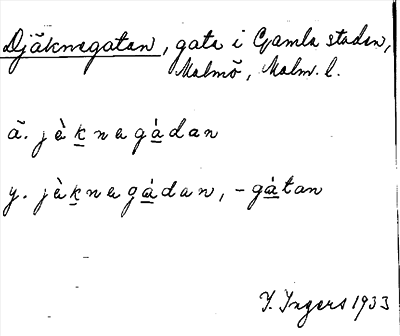 Djäknegatan, gata i Gamla staden,
Malmö, Malm. l.
ä. jèknegádan
y. jèknegádan, -gátan
I. Ingers 1933